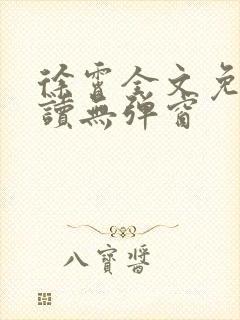 徐霄全文免
讀無彈窗
八寶醬